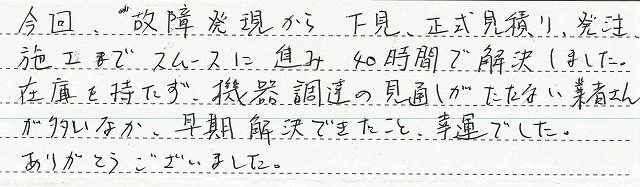 今回、故障発現から下見、正式見積り、発注、
施工までスムースに進み40時間で解決しました。
在庫を持たず、機器調達の見通しがたたない業者さん
が多いなか、早期解決できたこと、幸運でした。
ありがとうございました。